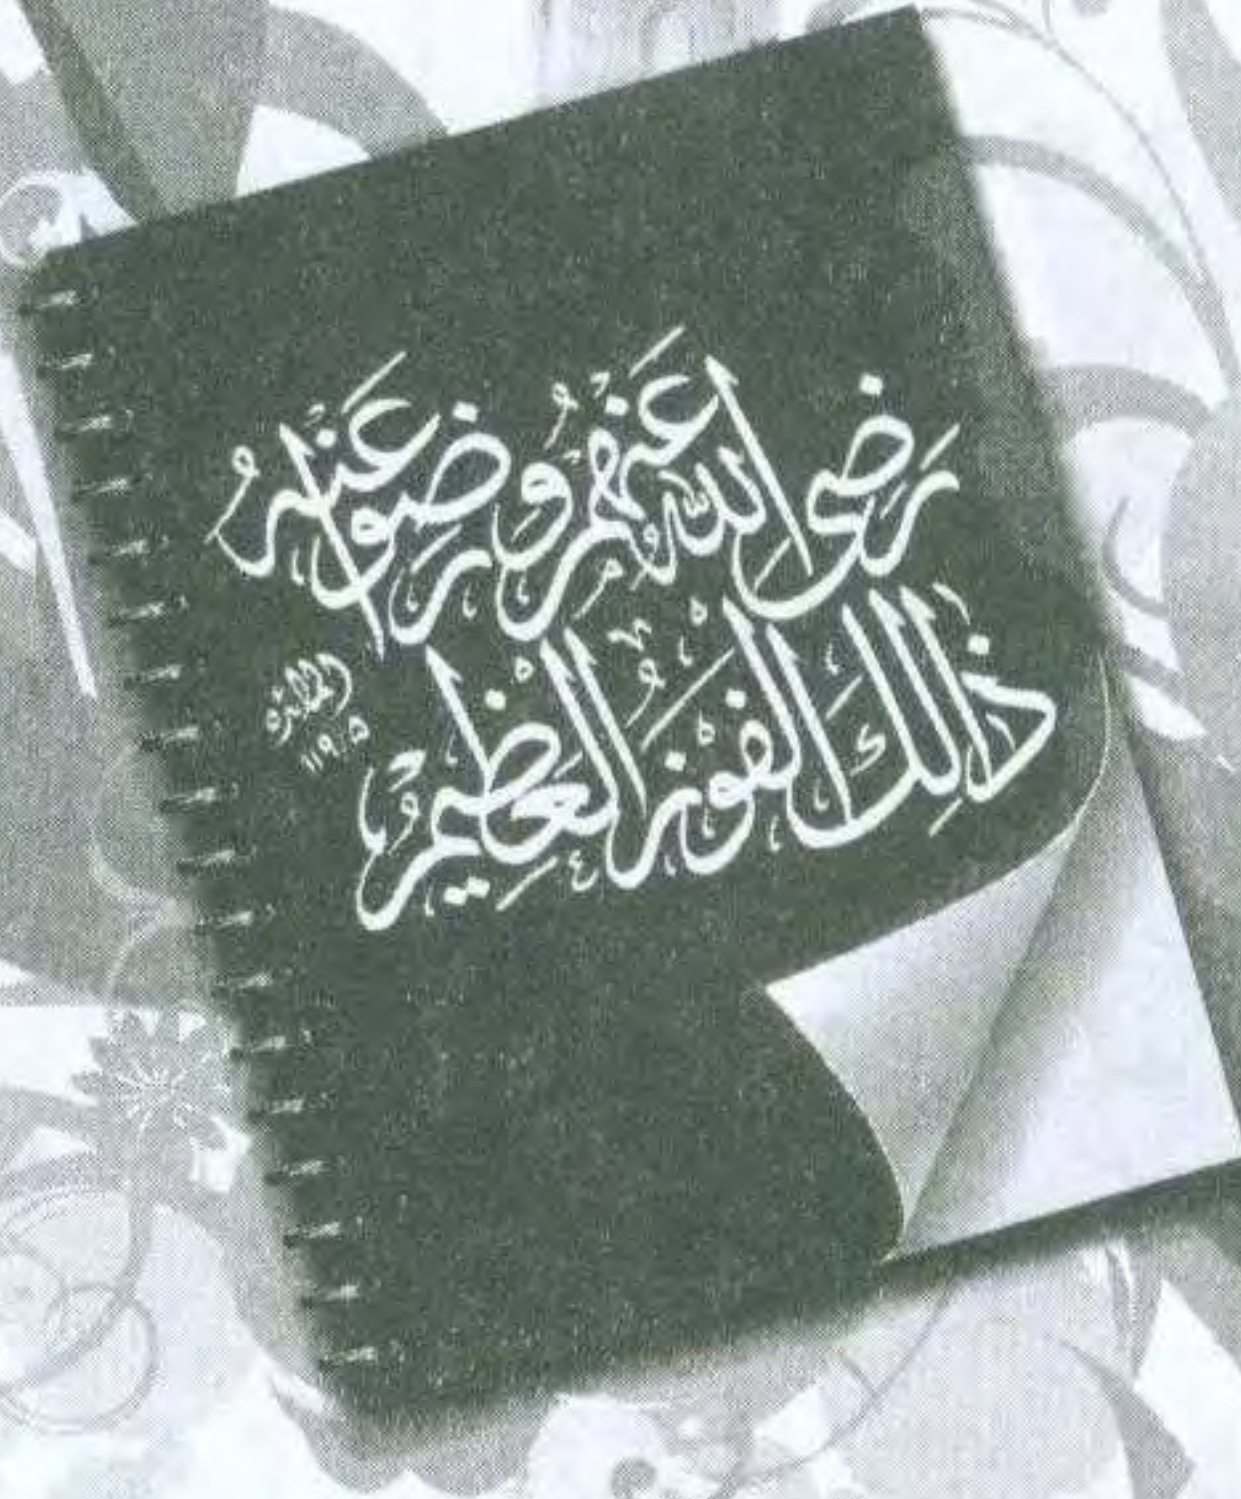 رَضِيَ اللّٰهُ عَنْهُمْ وَرَضُوْا عَنْهُ
ذٰلِكَ الْفَوْزُ الْعَظِيْمُ
المائدہ
۱۱۹،۵